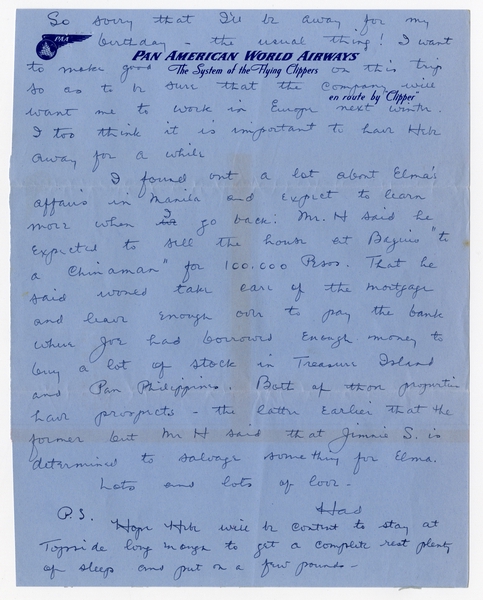 So sorry that I'll be away for my
birthday - the usual thing! I want
PAA
PAN AMERICAN WORLD AIRWAYS
The System of the Flying Clippers
to make good on this trip
so as to be sure that the company will
en route by "Clipper"
want me to work in Europe next winter
I too think it is important to have Heb
away for a while
I found out a lot about Elma's
affairs in Manila and expect to learn
more when I go back: Mr. H said he
expected to sell the house at Baguio "to
a Chinaman" for 100.000 Pesos. That he
said would take care of the mortgage
and leave enough over to pay the bank
where Joe had borrowed enough money to
buy a lot of stock in Treasure Island
and Pan Philippines. Both of these properties
have prospects - the latter earlier that the
former but Mr H said that Jimmie S. is
determined to salvage something for Elma.
Lots and lots of love -
Had
P.S. Hope Heb will be content to stay at
Topside long enough to get a complete rest plenty
of sleep and put on a few pounds -